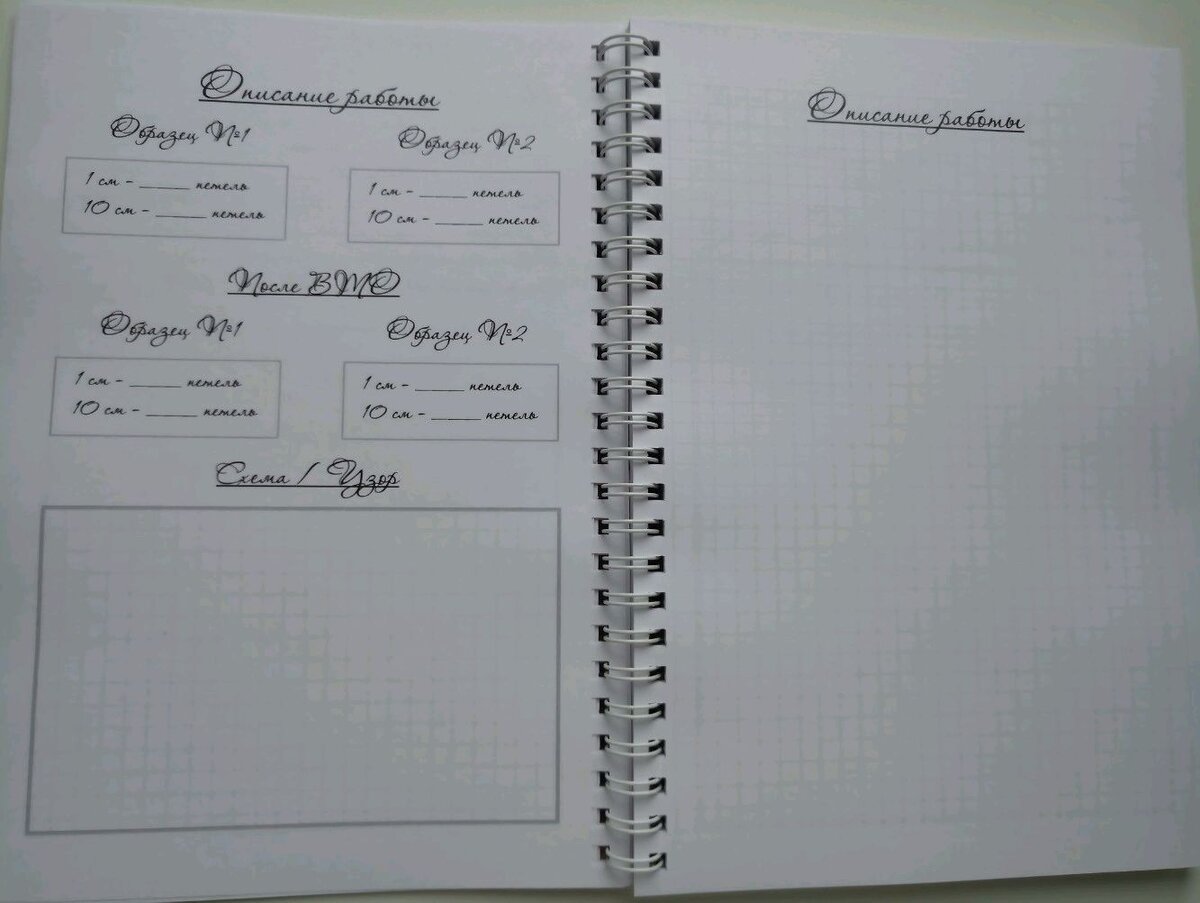 Описание работы
Образец №1
Образец №2
1 см - ______ петель
10 см - ______ петель
1 см - ______ петель
10 см - ______ петель
После ВТО
Образец №1
Образец №2
1 см - ______ петель
10 см - ______ петель
1 см - ______ петель
10 см - ______ петель
Схема / Узор
Описание работы